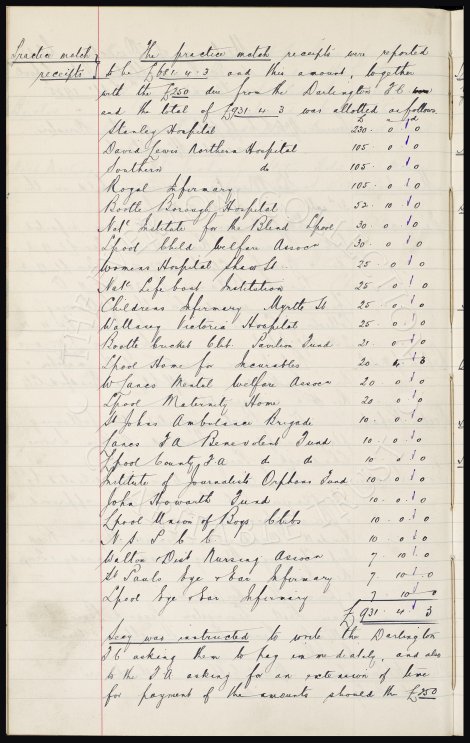 Practice match receipts
The practice match receipts were reported
to be £681 . 4 . 3 and this amount, together
with the £250 due from the Darlington F C
and the total of £931 4 3 was allotted as follows.
£ s d
Stanley Hospital 230 . 0 . 0
David Lewis Northern Hospital 105 . 0 . 0
Southern do 105 . 0 . 0
Royal Infirmary 105 . 0 . 0
Bootle Borough Hospital 52 . 10 0
Natl Institute for the Blind Lpool 30 . 0 . 0
Lpool Child Welfare Assocn 30 . 0 . 0
Womens Hospital Shaw St 25 . 0 0
Natl Life boat Institution 25 . 0 0
Childrens Infirmary Myrtle St 25 . 0 0
Wallasey Victoria Hospital 25 . 0 . 0
Bootle Cricket Clb. Pavilion Fund 21 0 0
Lpool Home for Incurables 20 . 4 . 3
W Lancs Mental Welfare Assocn 20 . 0 0
Lpool Maternity Home 20 0 0
St Johns Ambulance Brigade 10 . 0 . 0
Lancs F A Benevolent Fund 10 . 0 0
Lpool County F A do do 10 . 0 0
Institute of Journalists Orphans Fund 10 . 0 0
John Haworth Fund 10 . 0 0
Lpool Union of Boys Clubs 10 . 0 . 0
N. S. P. C. C. 10 . 0 0
Walton & Dist Nursing Assocn 7 10 . 0
St Pauls Eye & Ear Infirmary 7 10 . 0
Lpool Eye & Ear Infirmary 7 10 0
£931 . 4 . 3
Secy was instructed to write the Darlington
F C asking them to pay immediately, and also
to the F A asking for an extension of time
for payment of the amounts should the £250